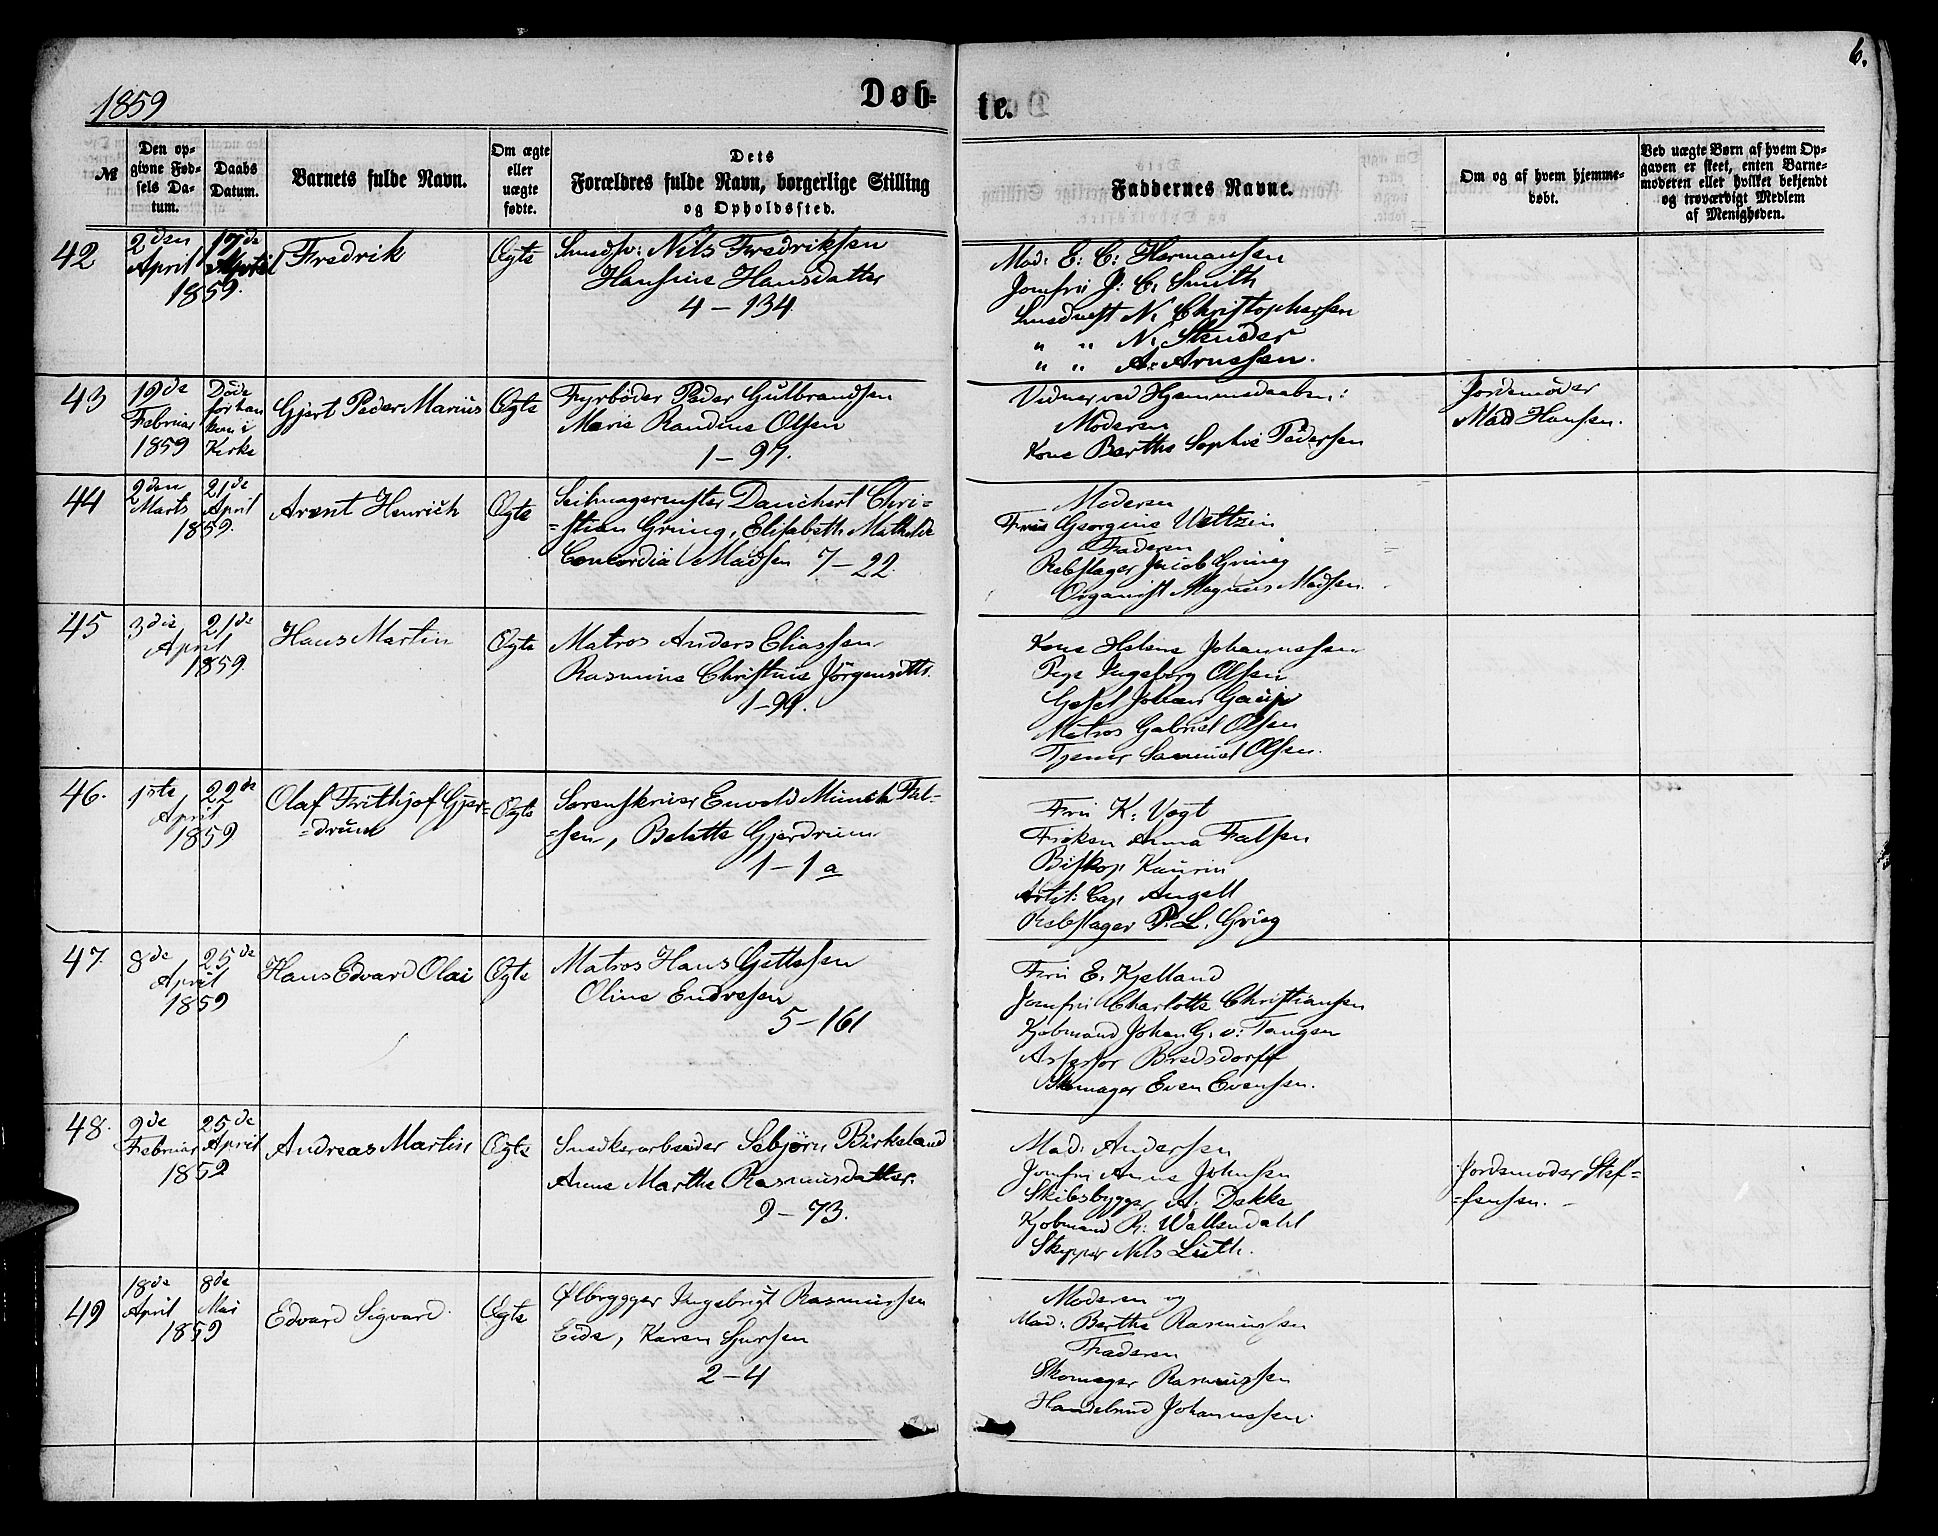 6.
1859
Døb-
te.
№
Den op-
givne Fød-
sels Da-
tum.
Daabs
Datum.
Barnets fulde Navn.
Om ægte
eller
uægte
fødte.
Dets
Forældres fulde Navn, borgerlige Stilling
og Opholdssted.
Faddernes Navne.
Om og af hvem hjemme-
døbt.
Ved uægte Børn af hvem Op-
gaven er skeet, enten Barne-
moderen eller hvilket bekjendt
og troværdigt Medlem
af Menigheden.
42
2den
April
17de
April
1859.
Fredrik
Ægte
Snedksv: Nils Fredriksen
Hansine Hansdatter
4 - 134
Mad: E: C: Hermansen
Jomfru J: C. Smith
N. Christophersen
" " N. Skuder
" " A. Arnesen.
43
19de
Februar
1859
Døde
før han
kom i
Kirke
Gjert Peder Marius
Ægte
Fyrbøder Peder Gulbrandsen
Marie Randine Olsen
1 - 97.
Vidner ved Hjemmedaaben:
Moderen
Kone Berthe Sophie Pedersen
Jordemoder
Mad Hansen.
44
2den
Marts
21de
April
1859.
Arent Henrich
Ægte
Seilmagermester Danchert Chri-
=stian Grung, Elisabeth Mathilde
Concordia Madsen 7 - 22.
Moderen
Frue Georgine Weltzin
Faderen
Rebslager Jacob Grieg
Organist Magnus Madsen.
45
3die
April
21de
1859.
Hans Martin
Ægte
Matros Anders Eliassen
Rasmine Christine Jörgensdttr.
1 - 99.
Kone Helene Johannessen
Pige Ingeborg Olsen
Gesel Johan Gaup
Matros Gabriel Olsen
Tjener Samuel Olsen.
46.
1ste
April
22de
1859
Olaf Frithjof Gjer-
=drum
Ægte
Sorenskriver Envold Munch Fal-
=sen, Belette Gjerdrum
1 - 1 a
Fru K: Vogt
Frøken Anna Falsen
Biskop Kaurin
Artil: Cap Angell
Rebslager P. L. Grieg
47.
8de
April
25de
1859
Hans Edvard Olai
Ægte
Matros Hans Gittlesen
Oline Endresen
5 - 161
Fru E. Kjelland
Jomfru Charlotte Christiansen
Kjøbmand Johan G. v: Tangen
Assessor Bredsdorff
Skomager Even Evensen.
48.
9de
Februar
25de
April
1859
Andreas Martin
Ægte
Snedkerarbeider Sebjörn Birkeland
Anne Marthe Rasmusdatter.
9 - 73.
Mad: Andersen
Jomfru Anne Johnsen
Skibsbygger A. Dekke
Kjøbmand R: Wallendahl
Skipper Nils Lüth.
Jordemoder Stef-
=fensen.
49
18de
April
8de
Mai
1859
Edvard Sigvard
Ægte
Ølbrygger Ingebrigt Rasmussen
Eide, Karen Sjursen
2 - 4
Moderen og
Mad: Berthe Rasmussen
Faderen
Skomager Rasmussen
Handelsmd Johannessen.